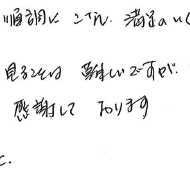 順調に こなし、満足のいく
見ることは 難しいですが、
感謝して おります
た.